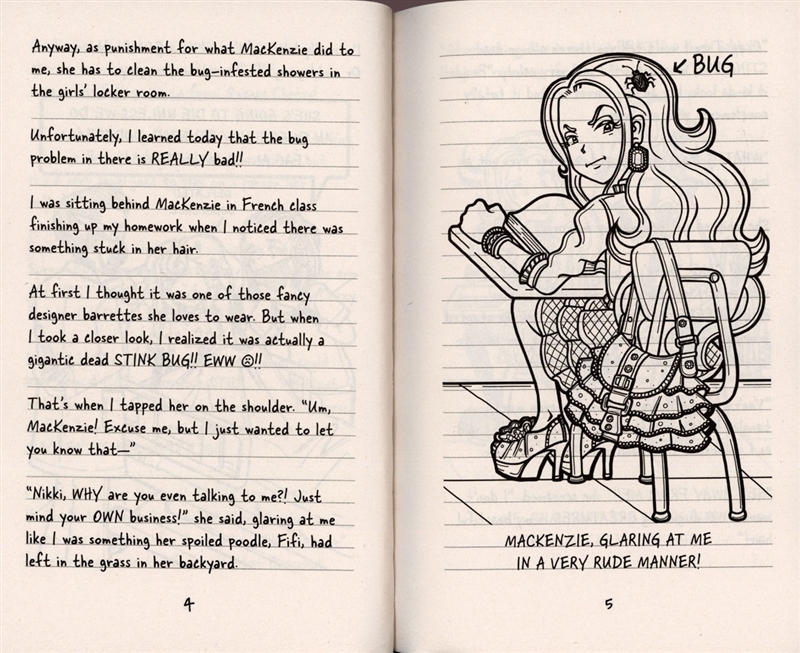 Anyway, as punishment for what MacKenzie did to
me, she has to clean the bug-infested showers in
the girls' locker room.
Unfortunately, I learned today that the bug
problem in there is REALLY bad!!
I was sitting behind MacKenzie in French class
finishing up my homework when I noticed there was
something stuck in her hair.
At first I thought it was one of those fancy
designer barrettes she loves to wear. But when
I took a closer look, I realized it was actually a
gigantic dead STINK BUG!! EWW ☹!!
That's when I tapped her on the shoulder. “Um,
MacKenzie! Excuse me, but I just wanted to let
you know that—”
“Nikki, WHY are you even talking to me?! Just
mind your OWN business!” she said, glaring at me
like I was something her spoiled poodle, Fifi, had
left in the grass in her backyard.
4
BUG
MACKENZIE, GLARING AT ME
IN A VERY RUDE MANNER!
5